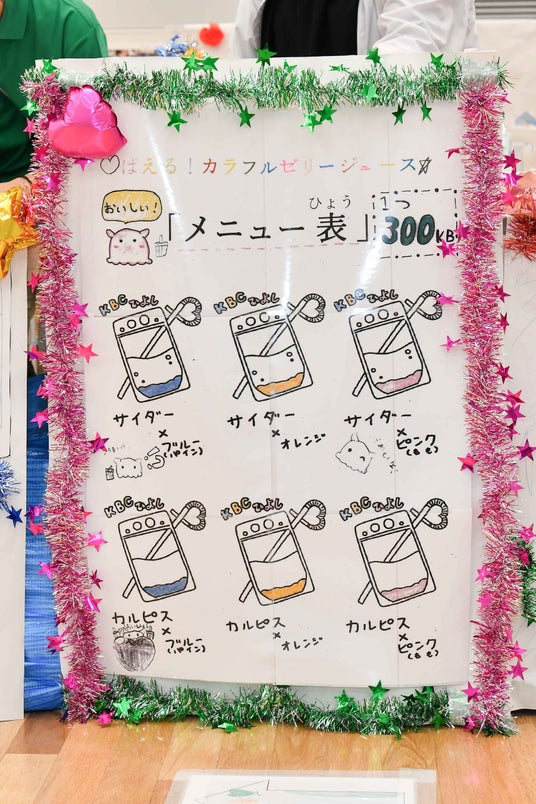 ♡ばえる！カラフルゼリージュース☆
おいしい！
ひょう
「メニュー表」
1つ
300KB
KBCひよし
KBCひよし
KBCひよし
サイダー
×
ブルー
(パイン)
サイダー
×
オレンジ
サイダー
×
ピンク
KBCひよし
KBCひよし
KBCひよし
カルピス
×
ブルー
(パイン)
カルピス
×
オレンジ
カルピス
×
ピンク